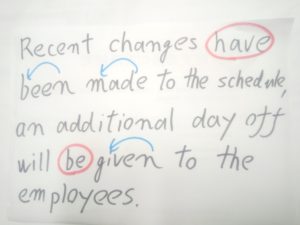 Recent changes have
been made to the schedule,
an additional day off
will be given to the
employees.